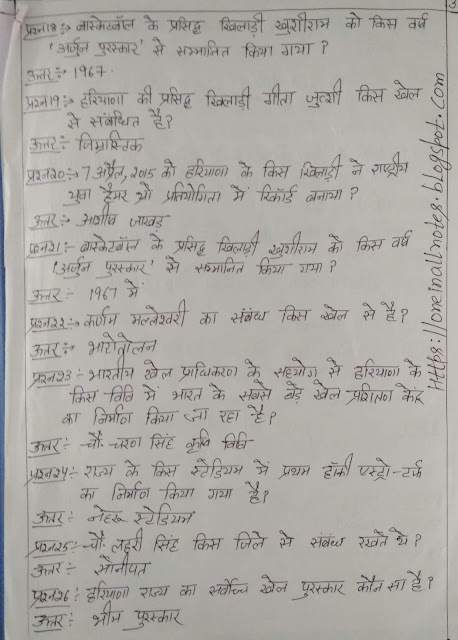 प्रश्न18:→ बास्केटबॉल के प्रसिद्ध खिलाड़ी खुशीराम को किस वर्ष
'अर्जुन पुरस्कार' से सम्मानित किया गया ?
उत्तर :→ 1967.
प्रश्न19:→ हरियाणा की प्रसिद्ध खिलाड़ी गीता जुत्शी किस खेल
से संबंधित है?
उत्तर:- जिम्नास्टिक
प्रश्न20:→ 7 अप्रैल, 2015 को हरियाणा के किस खिलाड़ी ने राष्ट्रीय
युवा हैमर थ्रो प्रतियोगिता में रिकॉर्ड बनाया ?
उत्तर :- आशीष जाखड़
प्रश्न21:- बास्केटबॉल के प्रसिद्ध खिलाड़ी खुशीराम को किस वर्ष
'अर्जुन पुरस्कार' से सम्मानित किया गया ?
उत्तर :- 1967 में
प्रश्न22:- कर्णम मल्लेश्वरी का संबंध किस खेल से है?
उत्तर :- भारोत्तोलन
प्रश्न23 :- भारतीय खेल प्राधिकरण के सहयोग से हरियाणा के
किस विवि में भारत के सबसे बड़े खेल-प्रशिक्षण केंद्र
का निर्माण किया जा रहा है?
उत्तर :- चौ. चरण सिंह कृषि विवि
प्रश्न24:- राज्य के किस स्टेडियम में प्रथम हॉकी एस्ट्रो-टर्फ
का निर्माण किया गया है?
उत्तर :- नेहरू स्टेडियम
प्रश्न25:- चौ. लहरी सिंह किस जिले से संबंध रखते थे?
उत्तर :- सोनीपत
प्रश्न26:- हरियाणा राज्य का सर्वोच्च खेल पुरस्कार कौन सा है?
उत्तर :- भीम पुरस्कार
Https://oneinallnotes.blogspot.com